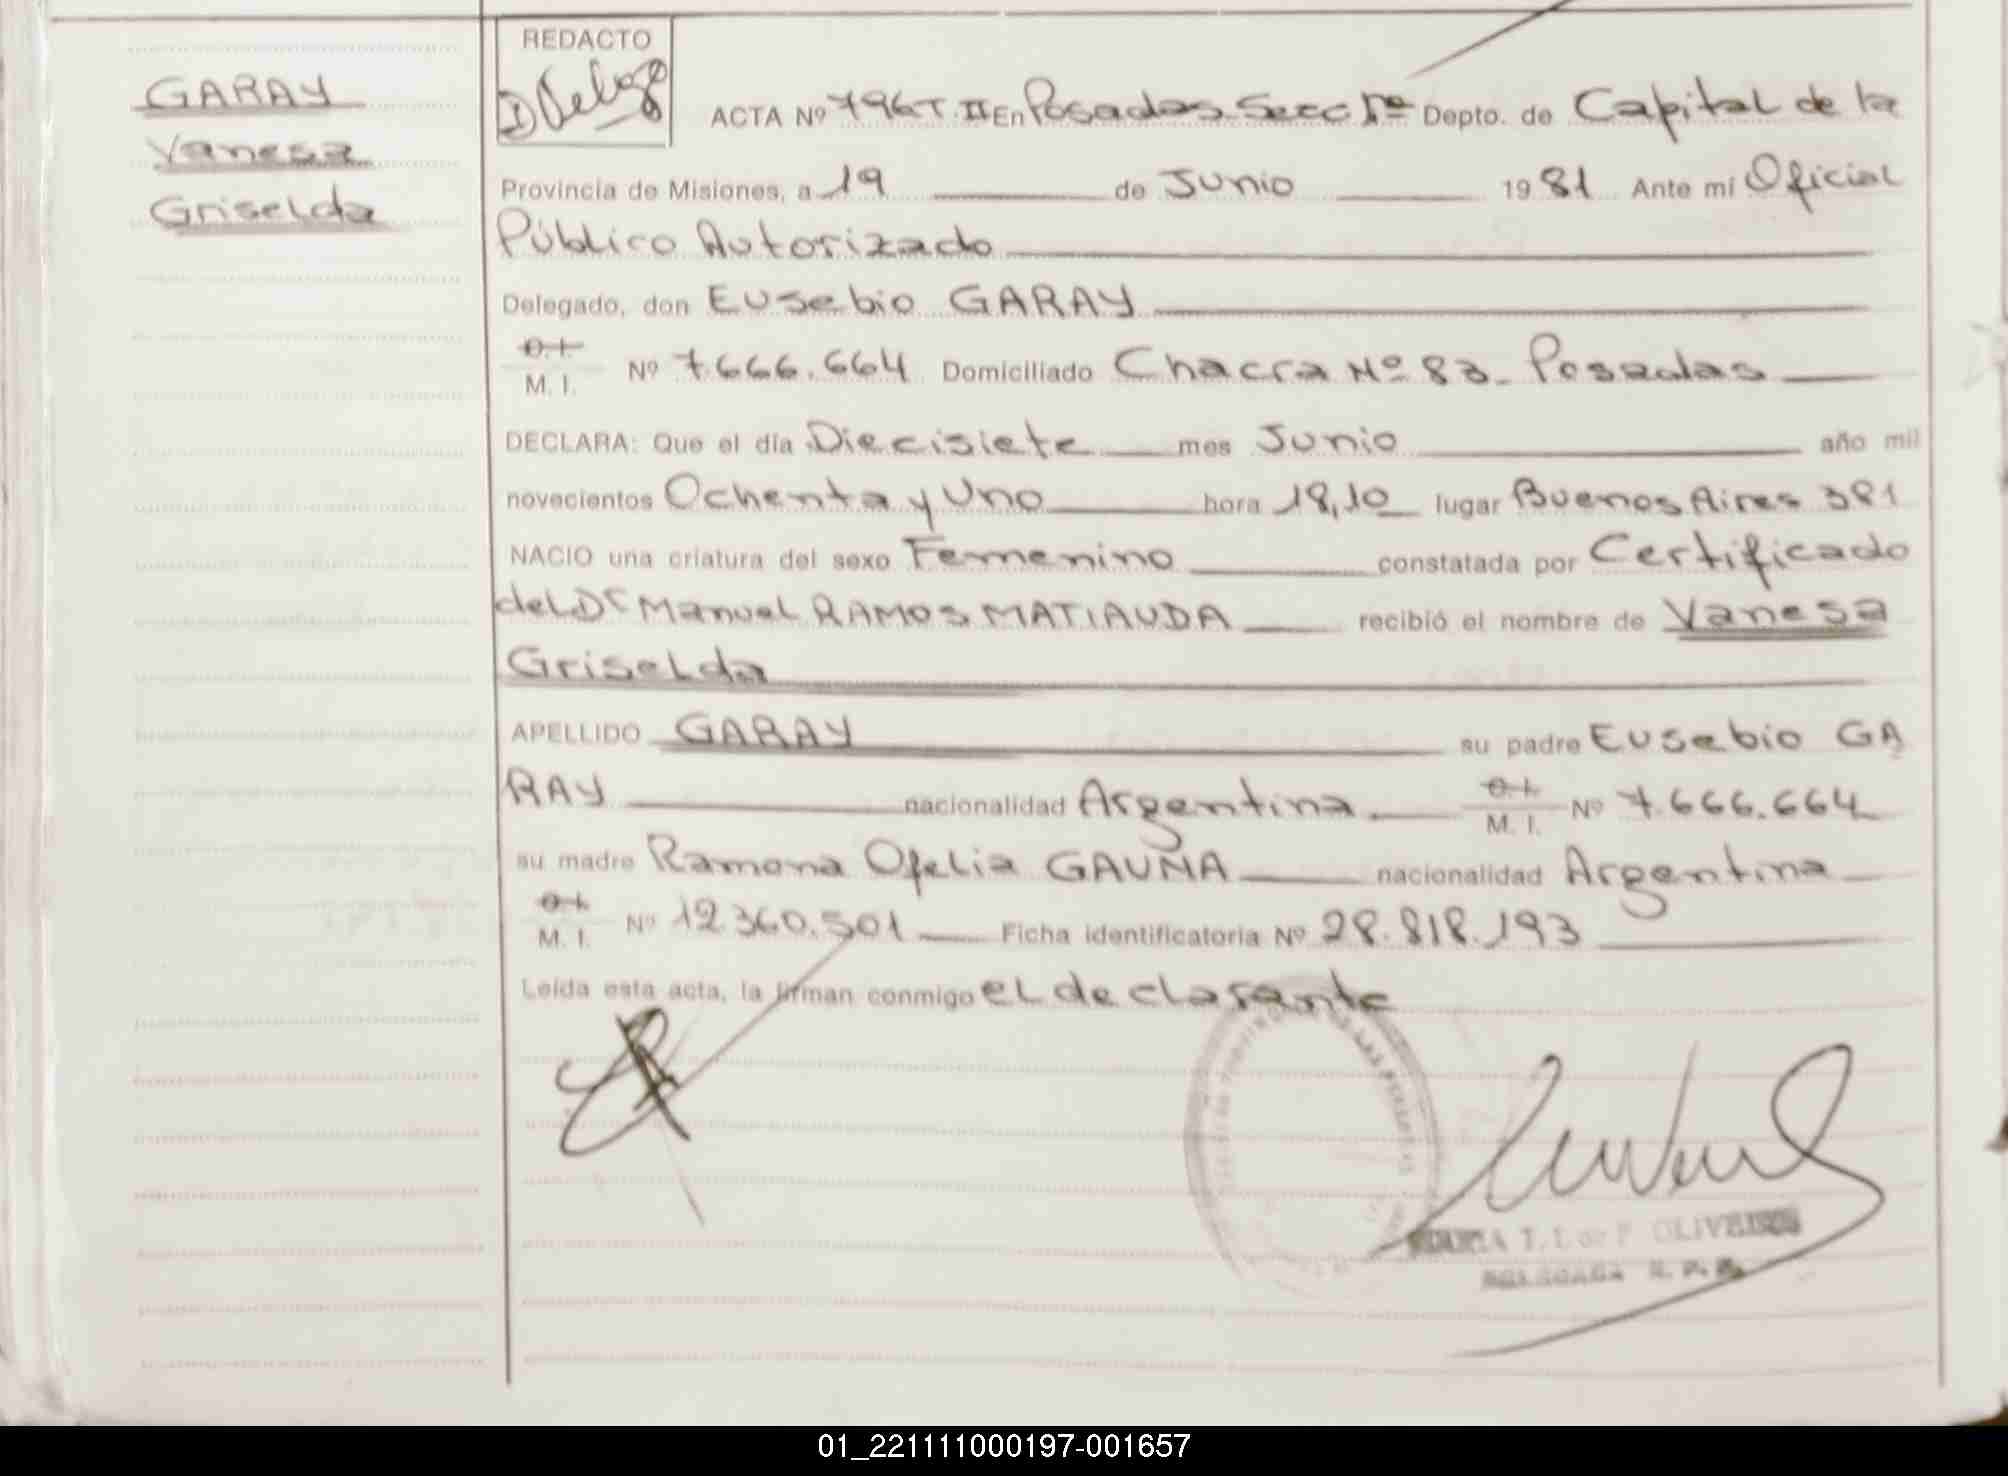 REDACTO
GARAY
Vanesa
Griselda
ACTA Nº 796 T. II En Posadas Secc 1ª Depto. de Capital de la
Provincia de Misiones, a 19 de Junio 1981 Ante mí Oficial
Público Autorizado
Delegado, don Eusebio GARAY
D.I.
M. I. Nº 7.666.664 Domiciliado Chacra Nº 83_ Posadas
DECLARA: Que el día Diecisiete mes Junio año mil
novecientos Ochenta y Uno hora 18,10 lugar Buenos Aires 381
NACIO una criatura del sexo Femenino constatada por Certificado
del Dr Manuel RAMOS MATIAUDA recibió el nombre de Vanesa
Griselda
APELLIDO GARAY su padre Eusebio GA
RAY nacionalidad Argentina M. I. Nº 7.666.664
su madre Ramona Ofelia GAUNA nacionalidad Argentina
M. I. Nº 12.360.501 Ficha identificatoria Nº 28.818.193
Leída esta acta, la firman conmigo el declarante
OLIVEIRA
DELEGADA R. P. P.
01_221111000197-001657